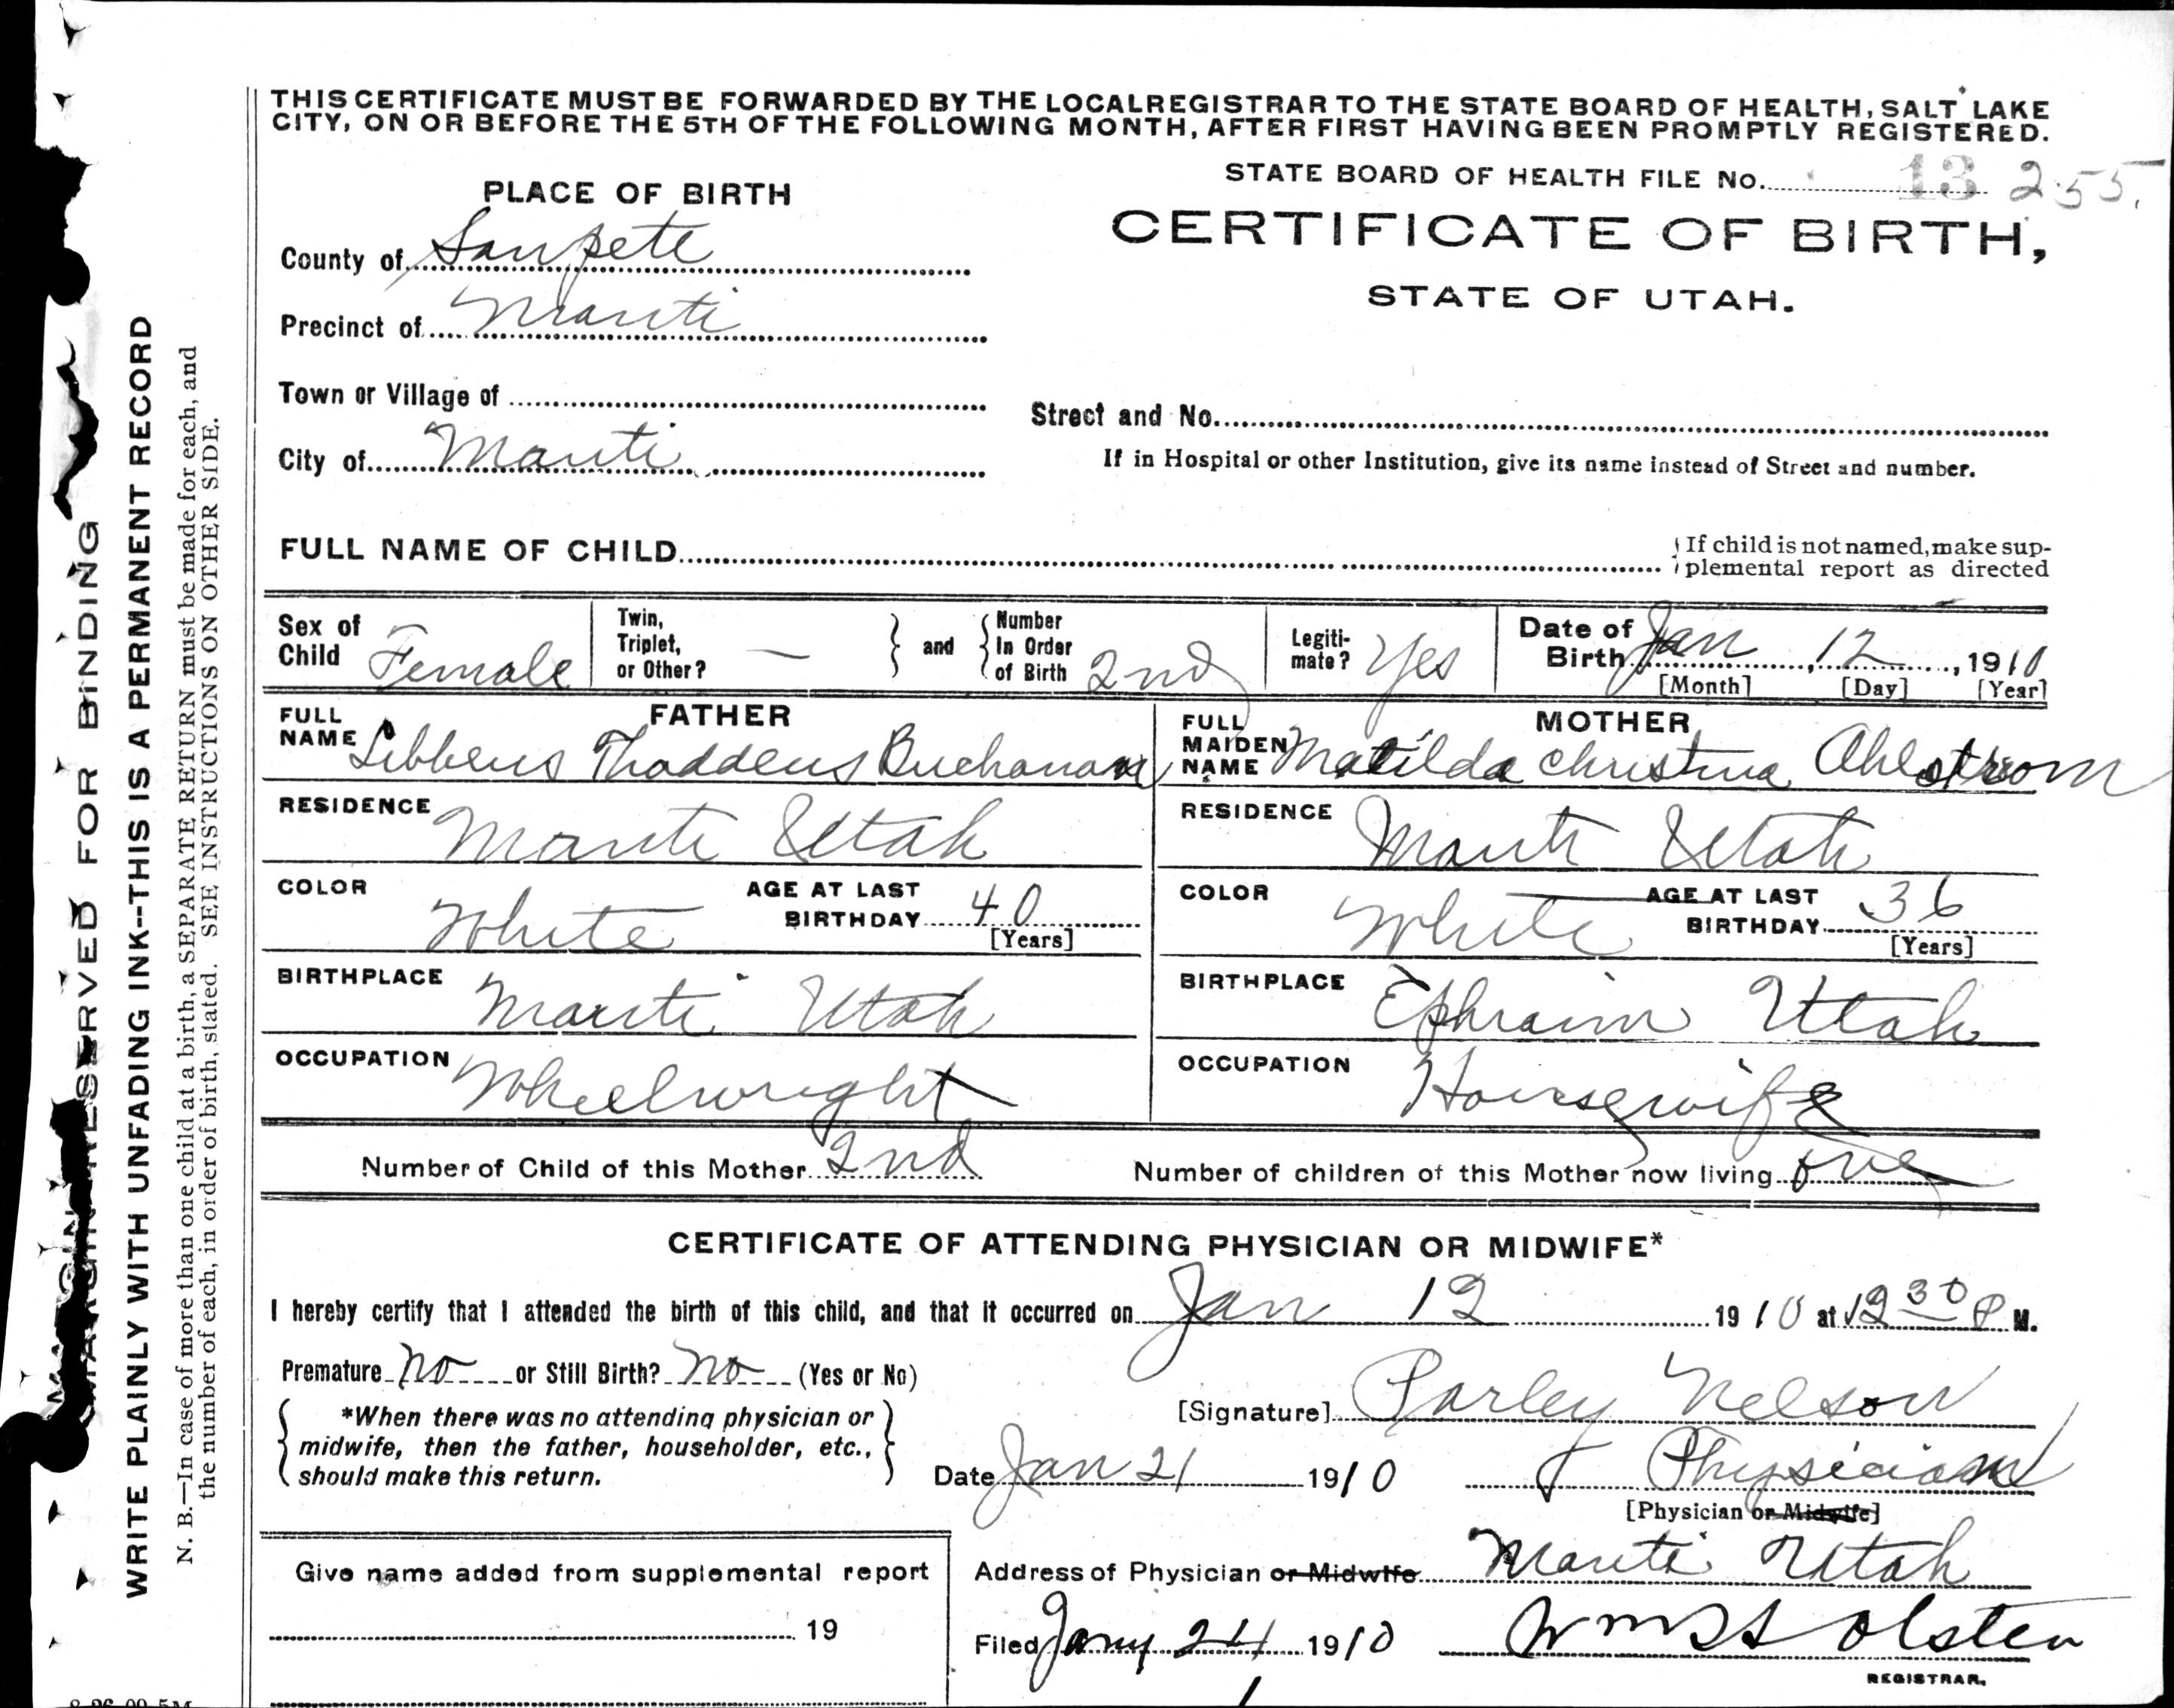 THIS CERTIFICATE MUST BE FORWARDED BY THE LOCAL REGISTRAR TO THE STATE BOARD OF HEALTH, SALT LAKE
CITY, ON OR BEFORE THE 5TH OF THE FOLLOWING MONTH, AFTER FIRST HAVING BEEN PROMPTLY REGISTERED.
STATE BOARD OF HEALTH FILE No. 13 255.
PLACE OF BIRTH
CERTIFICATE OF BIRTH,
STATE OF UTAH.
County of Sanpete
Precinct of Manti
Town or Village of
Street and No.
City of Manti
If in Hospital or other Institution, give its name instead of Street and number.
FULL NAME OF CHILD
If child is not named, make sup-
plemental report as directed
Sex of Child Female
Twin, Triplet, or Other? —
and
Number In Order of Birth 2nd
Legiti-mate? Yes
Date of Birth Jan, 12, 1910
[Month] [Day] [Year]
FATHER
FULL NAME Libbeus Thaddeus Buchanan
MOTHER
FULL MAIDEN NAME Matilda Christina Ahlstrom
RESIDENCE Manti Utah
RESIDENCE Manti Utah
COLOR White
AGE AT LAST BIRTHDAY 40 [Years]
COLOR White
AGE AT LAST BIRTHDAY 36 [Years]
BIRTHPLACE Manti Utah
BIRTHPLACE Ephraim Utah
OCCUPATION Wheelwright
OCCUPATION Housewife
Number of Child of this Mother 2nd
Number of children of this Mother now living one
CERTIFICATE OF ATTENDING PHYSICIAN OR MIDWIFE*
I hereby certify that I attended the birth of this child, and that it occurred on Jan 12 1910 at 12 30 P M.
Premature no or Still Birth? no (Yes or No)
*When there was no attending physician or
midwife, then the father, householder, etc.,
should make this return.
[Signature] Parley Nelson
Date Jan 21 1910
Physician
[Physician or Midwife]
Give name added from supplemental report
19
Address of Physician or Midwife Manti Utah
Filed Jany 24 1910
Olsten
REGISTRAR.
MARGIN RESERVED FOR BINDING
WRITE PLAINLY WITH UNFADING INK--THIS IS A PERMANENT RECORD
N. B.—In case of more than one child at a birth, a SEPARATE RETURN must be made for each, and
the number of each, in order of birth, stated. SEE INSTRUCTIONS ON OTHER SIDE.